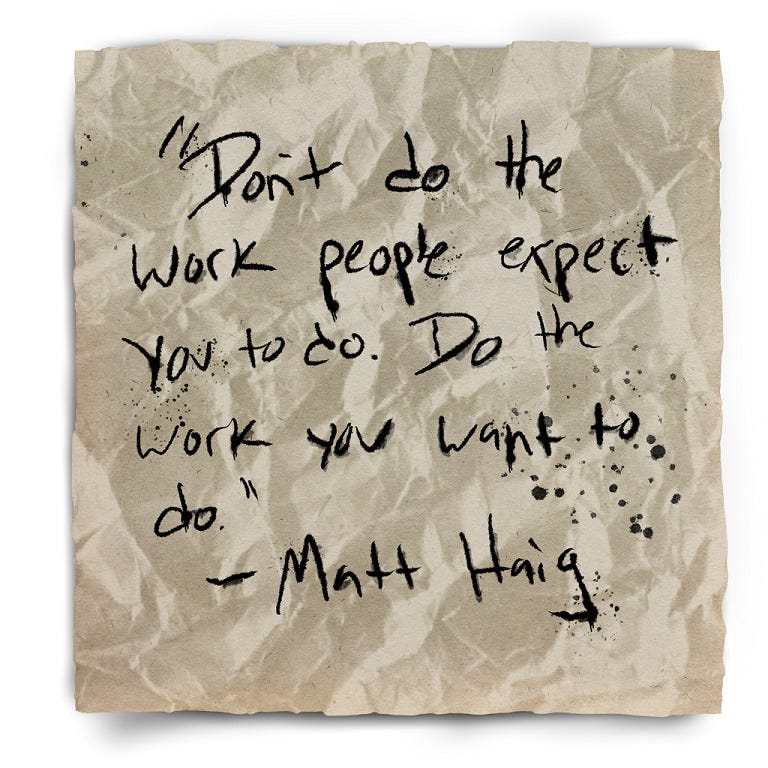 "Don't do the
work people expect
you to do. Do the
work you want to
do."
- Matt Haig